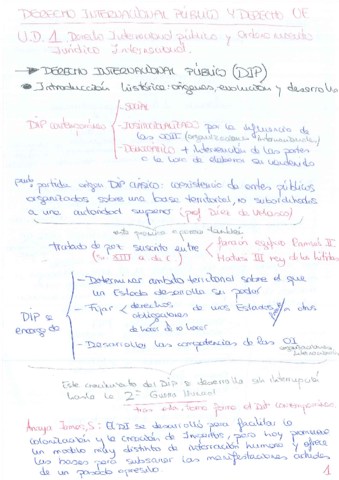 DERECHO INTERNACIONAL PÚBLICO Y DERECHO UE
U.D. 1. Derecho Internacional público y Ordenamiento
Jurídico Internacional.
DERECHO INTERNACIONAL PÚBLICO (DIP)
Introducción histórica: orígenes, evolución y desarrollo
- SOCIAL
DIP contemporáneo - INSTITUCIONALIZADO por la influencia de
las OOII (organizaciones internacionales)
- DEMOCRÁTICO + intervención de las partes
a la hora de elaborar su contenido
punto partida origen DIP clásico: coexistencia de entes públicos
organizados sobre una base territorial, no subordinados
a una autoridad superior (prof Díez de Velasco)
esta posición expresa también
tratado de paz suscrito entre faraón egipto Ramsés II
(s. XIII a. de C.) Hattusil III rey de los hititas
- Determinar ámbito territorial sobre el que
un Estado desarrolla su poder
DIP se encarga de - Fijar derechos de unos Estados otros
obligaciones
de hacer o no hacer
- Desarrollar las competencias de las OI
organizaciones internacionales
Este crecimiento del DIP se desarrolla sin interrupción
hasta la 2ª Guerra Mundial
tras esta, toma forma el DIP contemporáneo.
Anaya James, S: El DI se desarrolló para facilitar la
colonización y la creación de Imperios, pero hoy promueve
un modelo muy distinto de interacción humana y ofrece
las bases para subsanar las manifestaciones actuales
de un pasado opresivo.
1